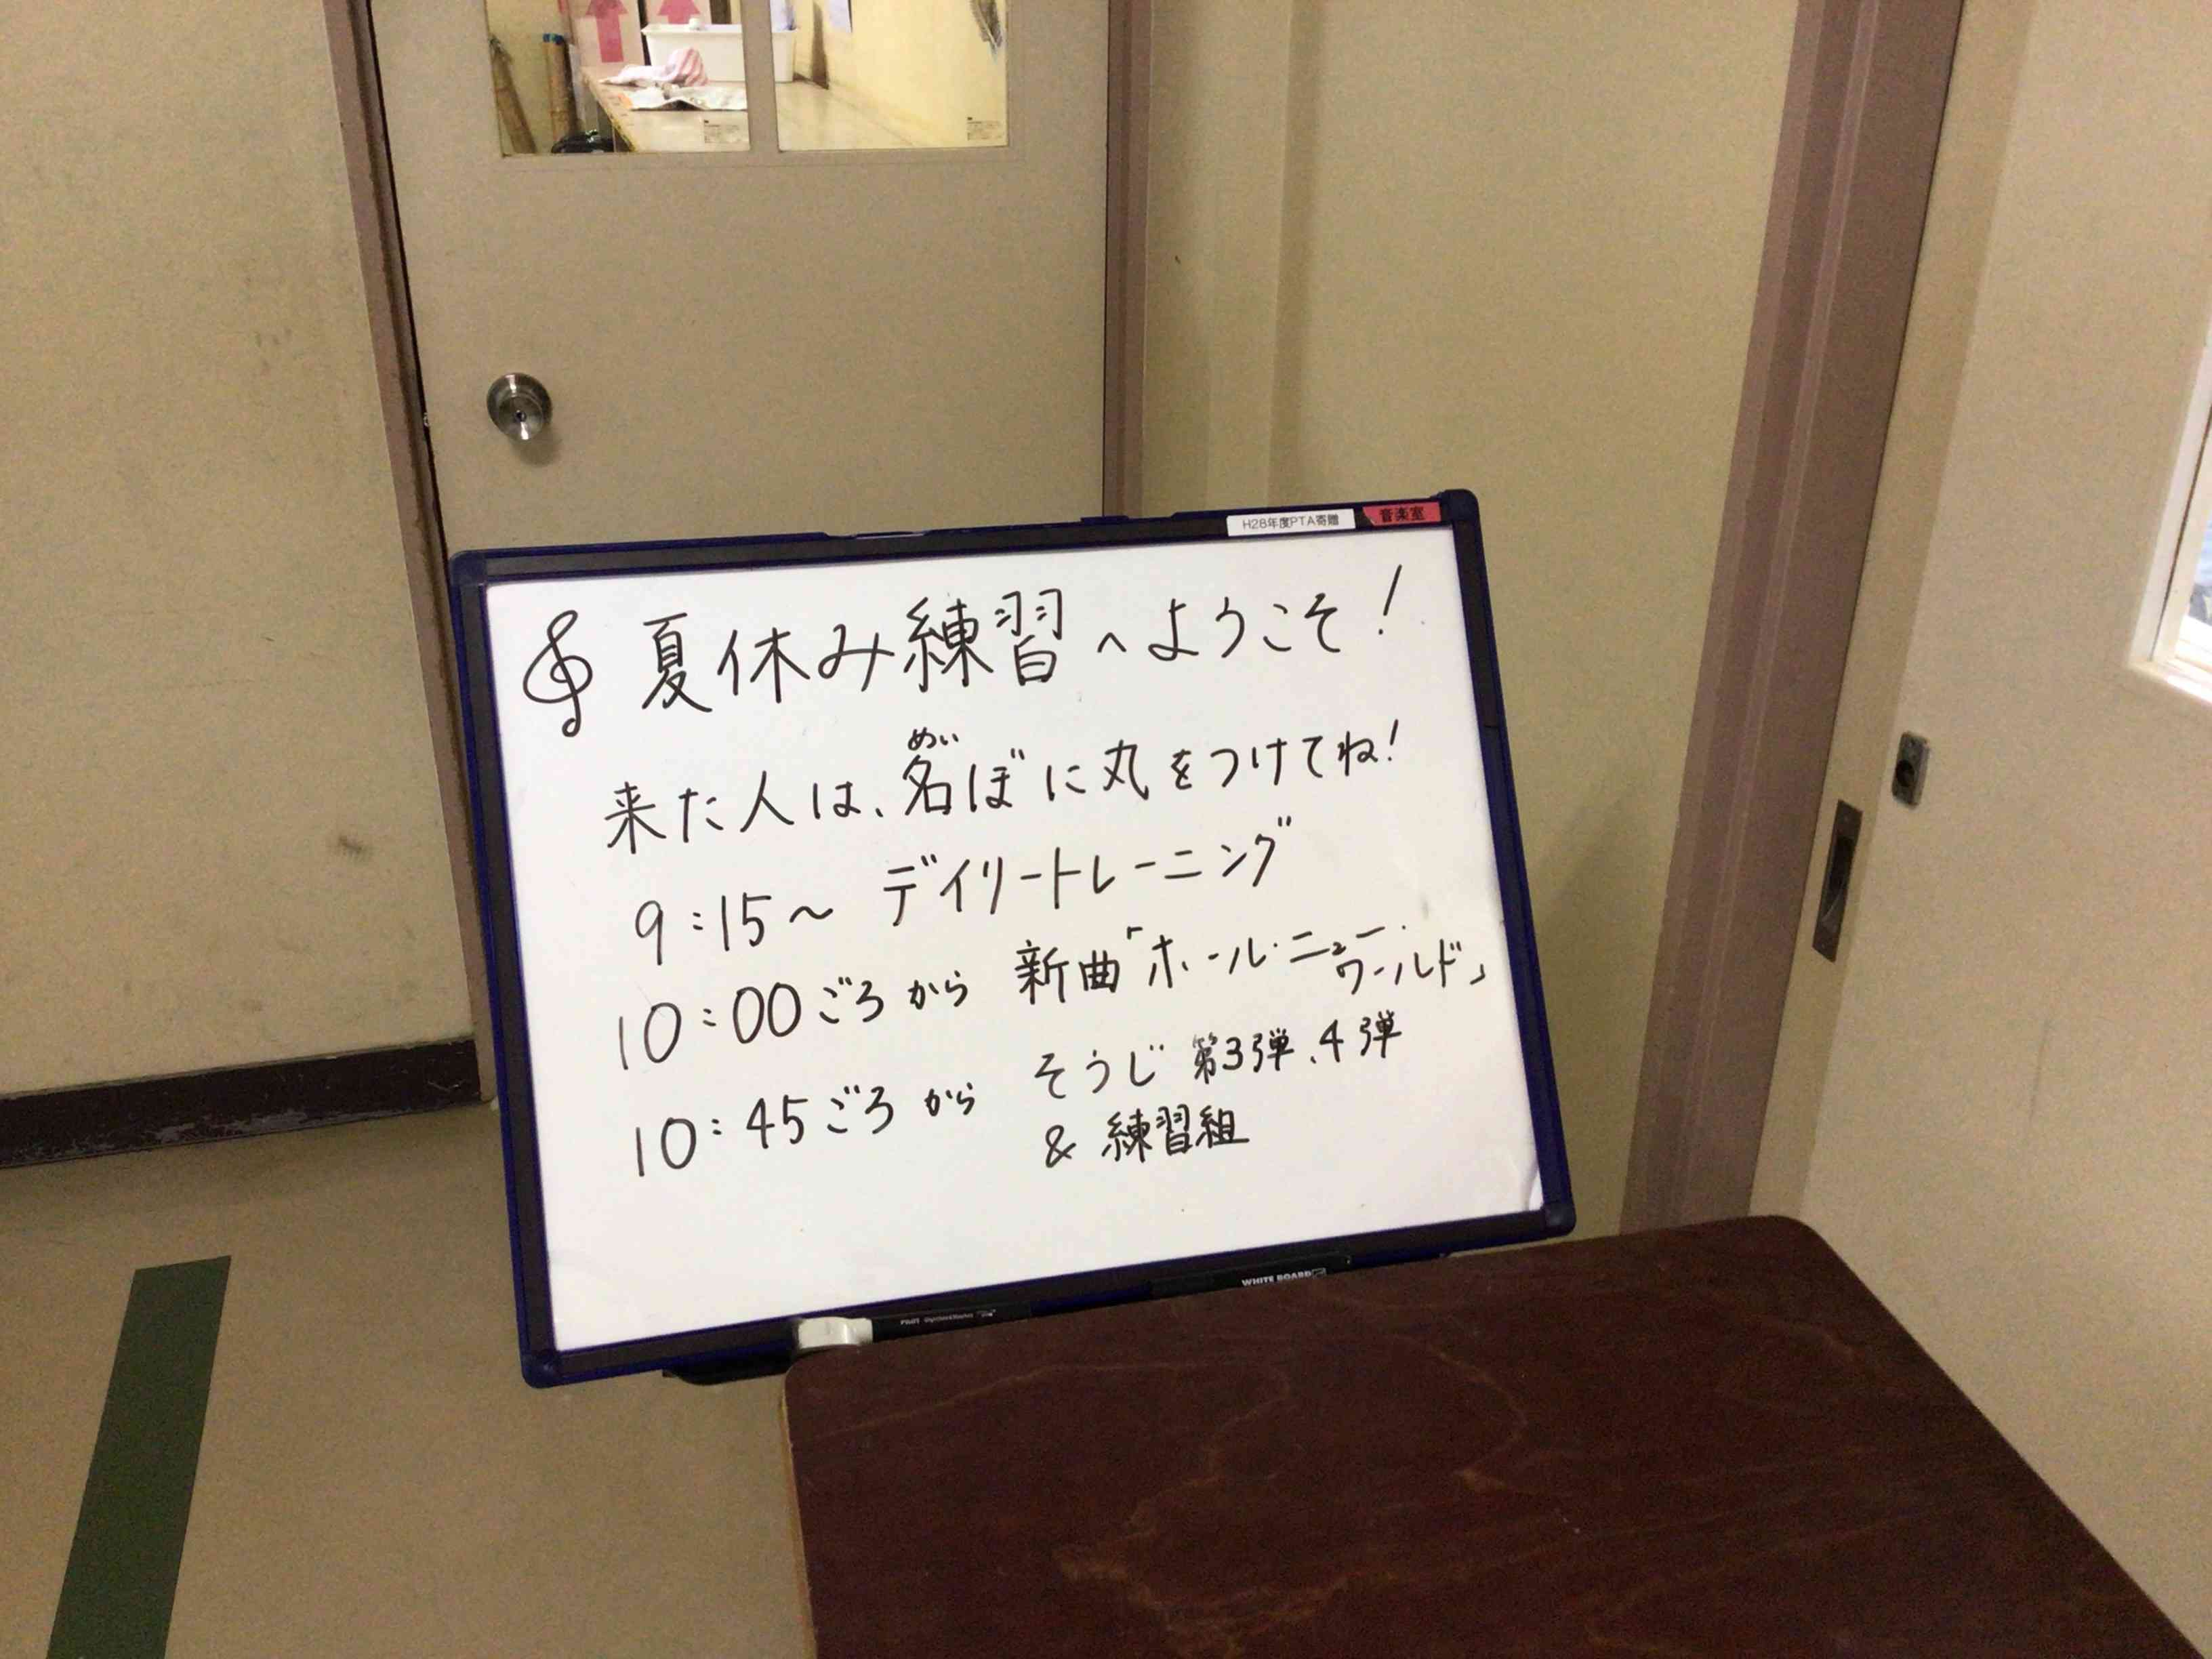 H28年度PTA寄贈 音楽室
夏休み練習へようこそ!
めい
来た人は、名ぼに丸をつけてね!
9:15〜 デイリートレーニング
10:00ごろから 新曲「ホール・ニュー・
ワールド」
10:45ごろから そうじ 第3弾、4弾
& 練習組
WHITE BOARD
PILOT